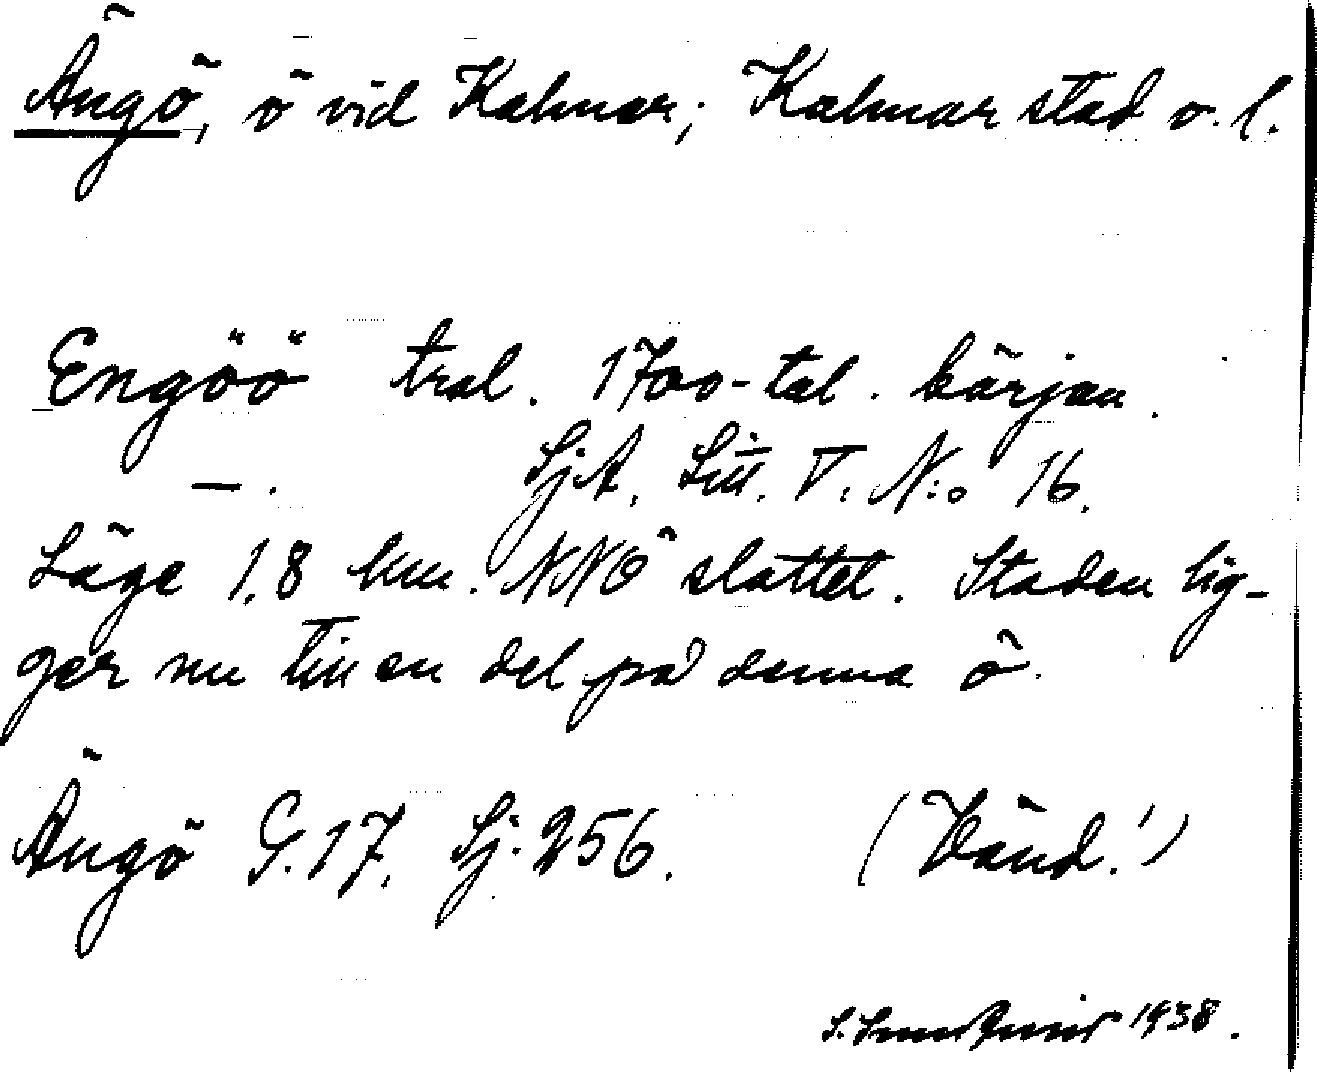 Ängö, ö vid Kalmar; Kalmar stad o. l.
Engöö tral. 1700-tal. början.
—. SjA. Litt. V. N:o 16.
Läge 1,8 km. NNÖ slottet. Staden lig-
ger nu till en del på denna ö.
Ängö G. 17. Sj. 256. (Vänd!)
S. 1938.